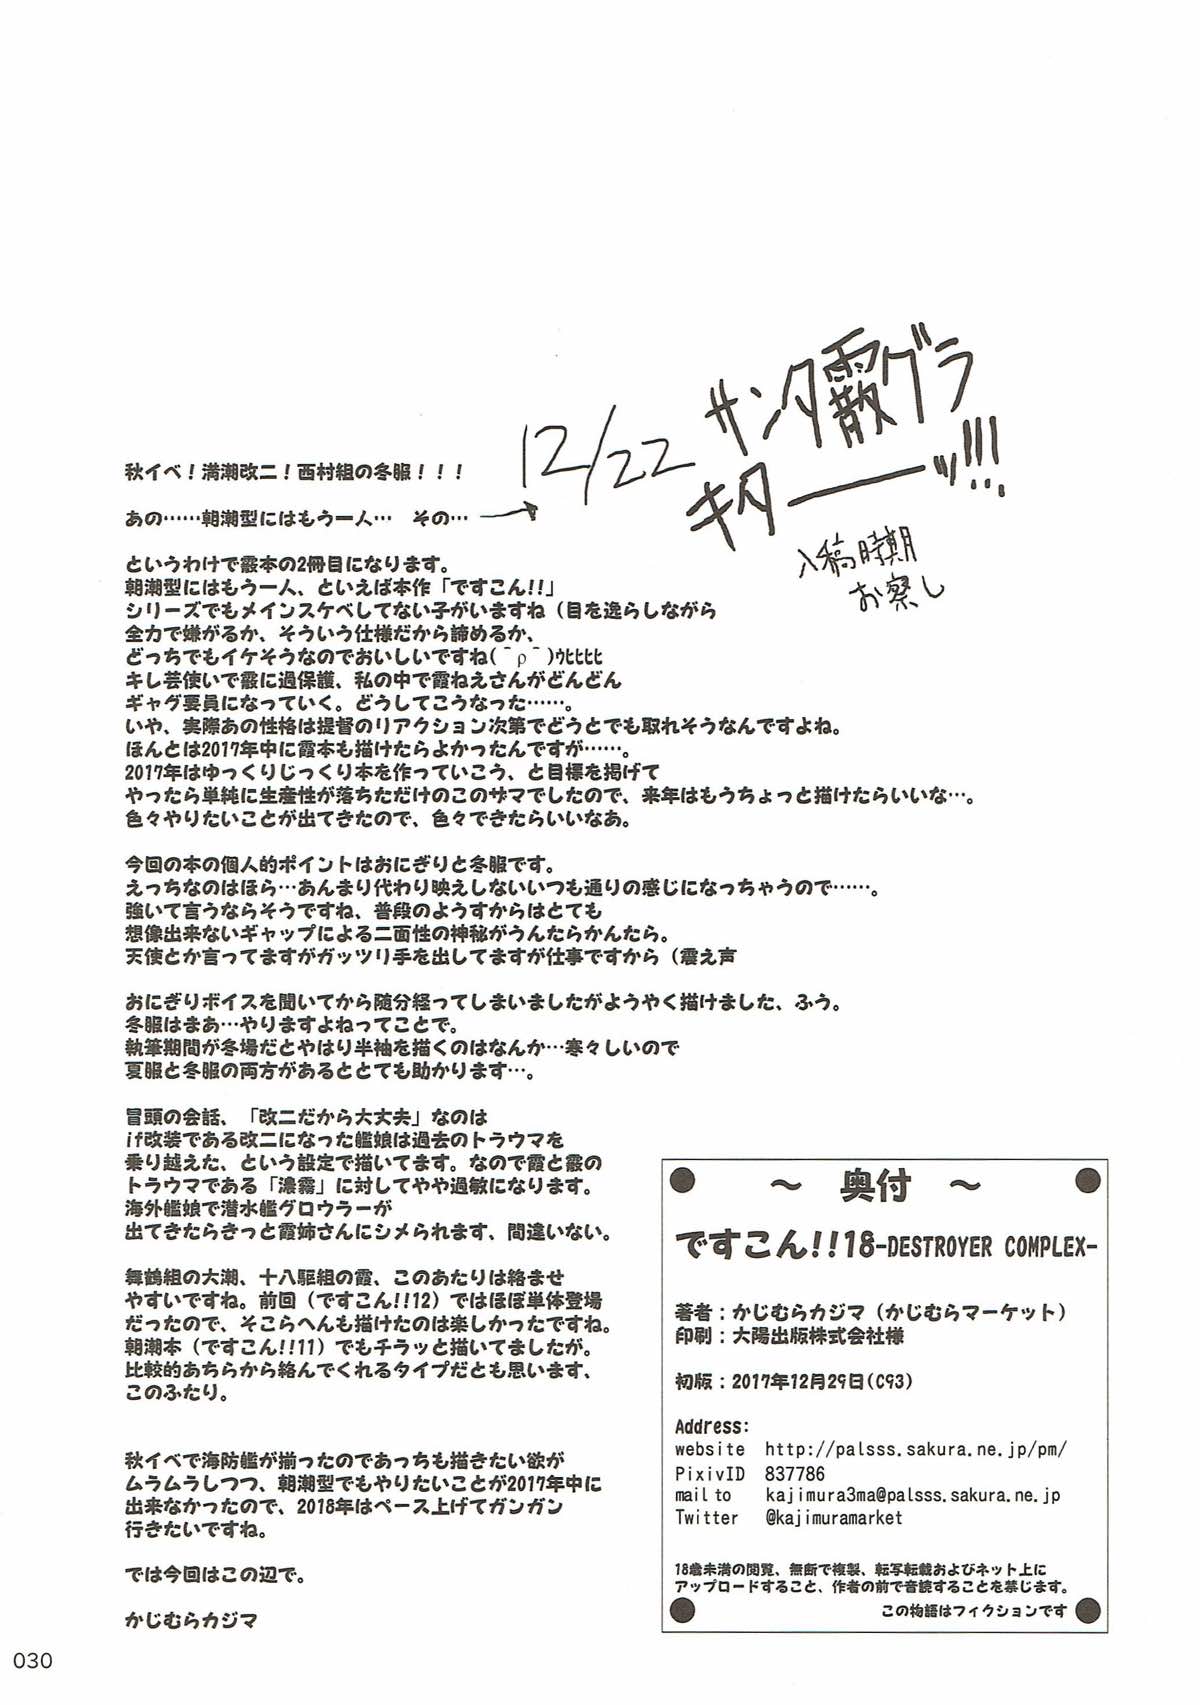 12/22 サンタ霰グラ
キターーーッ!!!
入稿時期
お察し
秋イベ！満潮改二！西村組の冬服！！！
あの……朝潮型にはもう一人… その…
というわけで霰本の2冊目になります。
朝潮型にはもう一人、といえば本作「ですこん!!」
シリーズでもメインスケベしてない子がいますね（目を逸らしながら
全力で嫌がるか、そういう仕様だから諦めるか、
どっちでもイケそうなのでおいしいですね(¯ρ¯)ｳﾋﾋﾋﾋ
キレ芸使いで霰に過保護、私の中で霞ねえさんがどんどん
ギャグ要員になっていく。どうしてこうなった……。
いや、実際あの性格は提督のリアクション次第でどうとでも取れそうなんですよね。
ほんとは2017年中に霞本も描けたらよかったんですが……。
2017年はゆっくりじっくり本を作っていこう、と目標を掲げて
やったら単純に生産性が落ちただけのこのザマでしたので、来年はもうちょっと描けたらいいな…。
色々やりたいことが出てきたので、色々できたらいいなあ。
今回の本の個人的ポイントはおにぎりと冬服です。
えっちなのはほら…あんまり代わり映えしないいつも通りの感じになっちゃうので……。
強いて言うならそうですね、普段のようすからはとても
想像出来ないギャップによる二面性の神秘がうんたらかんたら。
天使とか言ってますがガッツリ手を出してますが仕事ですから（震え声
おにぎりボイスを聞いてから随分経ってしまいましたがようやく描けました、ふう。
冬服はまあ…やりますよねってことで。
執筆期間が冬場だとやはり半袖を描くのはなんか…寒々しいので
夏服と冬服の両方があるととても助かります…。
冒頭の会話、「改二だから大丈夫」なのは
if改装である改二になった艦娘は過去のトラウマを
乗り越えた、という設定で描いてます。なので霞と霰の
トラウマである「濃霧」に対してやや過敏になります。
海外艦娘で潜水艦グロウラーが
出てきたらきっと霞姉さんにシメられます、間違いない。
舞鶴組の大潮、十八駆組の霞、このあたりは絡ませ
やすいですね。前回（ですこん!!12）ではほぼ単体登場
だったので、そこらへんも描けたのは楽しかったですね。
朝潮本（ですこん!!11）でもチラッと描いてましたが。
比較的あちらから絡んでくれるタイプだとも思います、
このふたり。
秋イベで海防艦が揃ったのであっちも描きたい欲が
ムラムラしつつ、朝潮型でもやりたいことが2017年中に
出来なかったので、2018年はペース上げてガンガン
行きたいですね。
では今回はこの辺で。
かじむらカジマ
～ 奥付 ～
ですこん!!18-DESTROYER COMPLEX-
著者：かじむらカジマ（かじむらマーケット）
印刷：大陽出版株式会社様
初版：2017年12月29日(C93)
Address:
website http://palsss.sakura.ne.jp/pm/
PixivID 837786
mail to kajimura3ma@palsss.sakura.ne.jp
Twitter @kajimuramarket
18歳未満の閲覧、無断で複製、転写転載およびネット上に
アップロードすること、作者の前で音読することを禁じます。
この物語はフィクションです
030